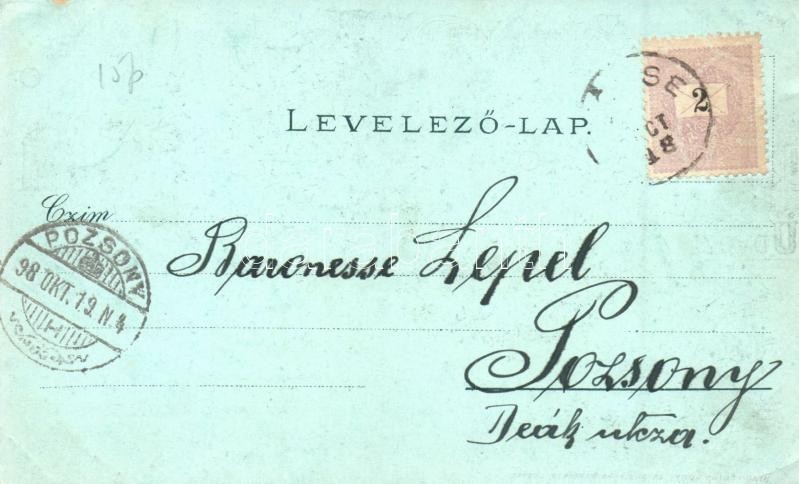 15p
LEVELEZŐ-LAP.
SE
2
18
Czim
Baronesse Lepel
POZSONY
98 OKT. 19. N. 4
Pozsony
Deák utcza.